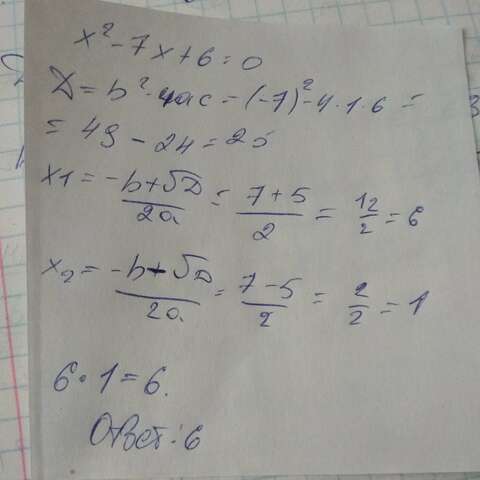 x² - 7x + 6 = 0
D = b² - 4ac = (-7)² - 4 · 1 · 6 =
= 49 - 24 = 25
x1 = -b + √D / 2a = 7 + 5 / 2 = 12 / 2 = 6
x2 = -b - √D / 2a = 7 - 5 / 2 = 2 / 2 = 1
6 · 1 = 6.
Ответ: 6